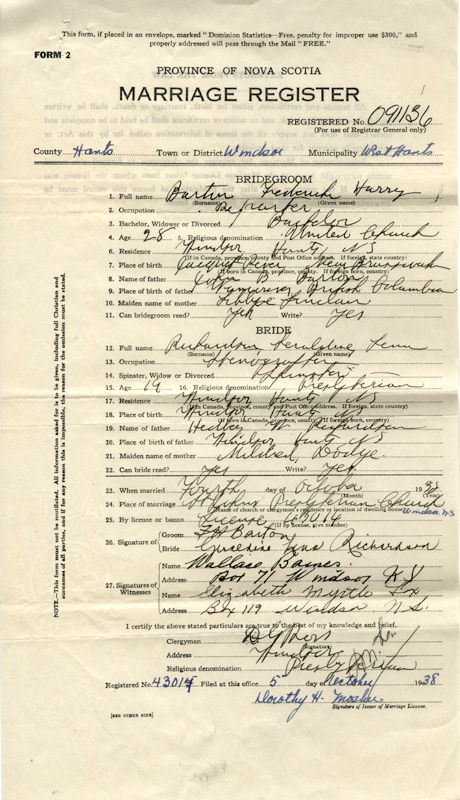 This form, if placed in an envelope, marked "Dominion Statistics—Free, penalty for improper use $300," and
properly addressed will pass through the Mail "FREE."
FORM 2
PROVINCE OF NOVA SCOTIA
MARRIAGE REGISTER
REGISTERED No. 091136
(For use of Registrar General only)
County Hants Town or District Windsor Municipality West Hants
BRIDEGROOM
1. Full name Barton Frederick Harry
(Surname) (Given name)
2. Occupation
3. Bachelor, Widower or Divorced Bachelor
4. Age 28 5. Religious denomination United Church
6. Residence Windsor Hants NS
(If in Canada, province, county and Post Office address. If foreign, state country)
7. Place of birth Jacquet River New Brunswick
(If born in Canada, province, county. If foreign born, country)
8. Name of father B. Barton
9. Place of birth of father Vancouver British Columbia
10. Maiden name of mother Sinclair
11. Can bridegroom read? Yes Write? Yes
BRIDE
12. Full name Richardson Geraldine
(Surname) (Given name)
13. Occupation Stenographer
14. Spinster, Widow or Divorced Spinster
15. Age 19 16. Religious denomination Presbyterian
17. Residence Windsor Hants NS
(If in Canada, province, county and Post Office address. If foreign, state country)
18. Place of birth Windsor Hants NS
(If born in Canada, province, county. If foreign born, country)
19. Name of father W. Richardson
20. Place of birth of father Windsor Hants NS
21. Maiden name of mother Mildred Dodge
22. Can bride read? Yes Write? Yes
23. When married Fourth day of October 1938
(Month) (Year)
24. Place of marriage St Johns Presbyterian Church Windsor N.S
(Name of church or clergyman's residence or location of dwelling house)
25. By license or banns License
(If by license, give number)
26. Signature of Groom F H Barton
Bride Richardson
27. Signatures of Witnesses
Name Wallace Barnes
Address Box 71 Windsor N S
Name Elizabeth Myrtle Fox
Address Box 119 Windsor N.S.
I certify the above stated particulars are true to the best of my knowledge and belief.
Clergyman
(Signature)
Address Windsor
Religious denomination Presbyterian
Registered No. 43014 Filed at this office 5 day of October 1938
Dorothy H. Mosher
Signature of Issuer of Marriage License.
[SEE OTHER SIDE]
NOTE.—This form must not be mutilated. All information asked for is to be given, including full Christian and
surnames of all parties, and if for any reason this is impossible, the reason for the omission must be stated.